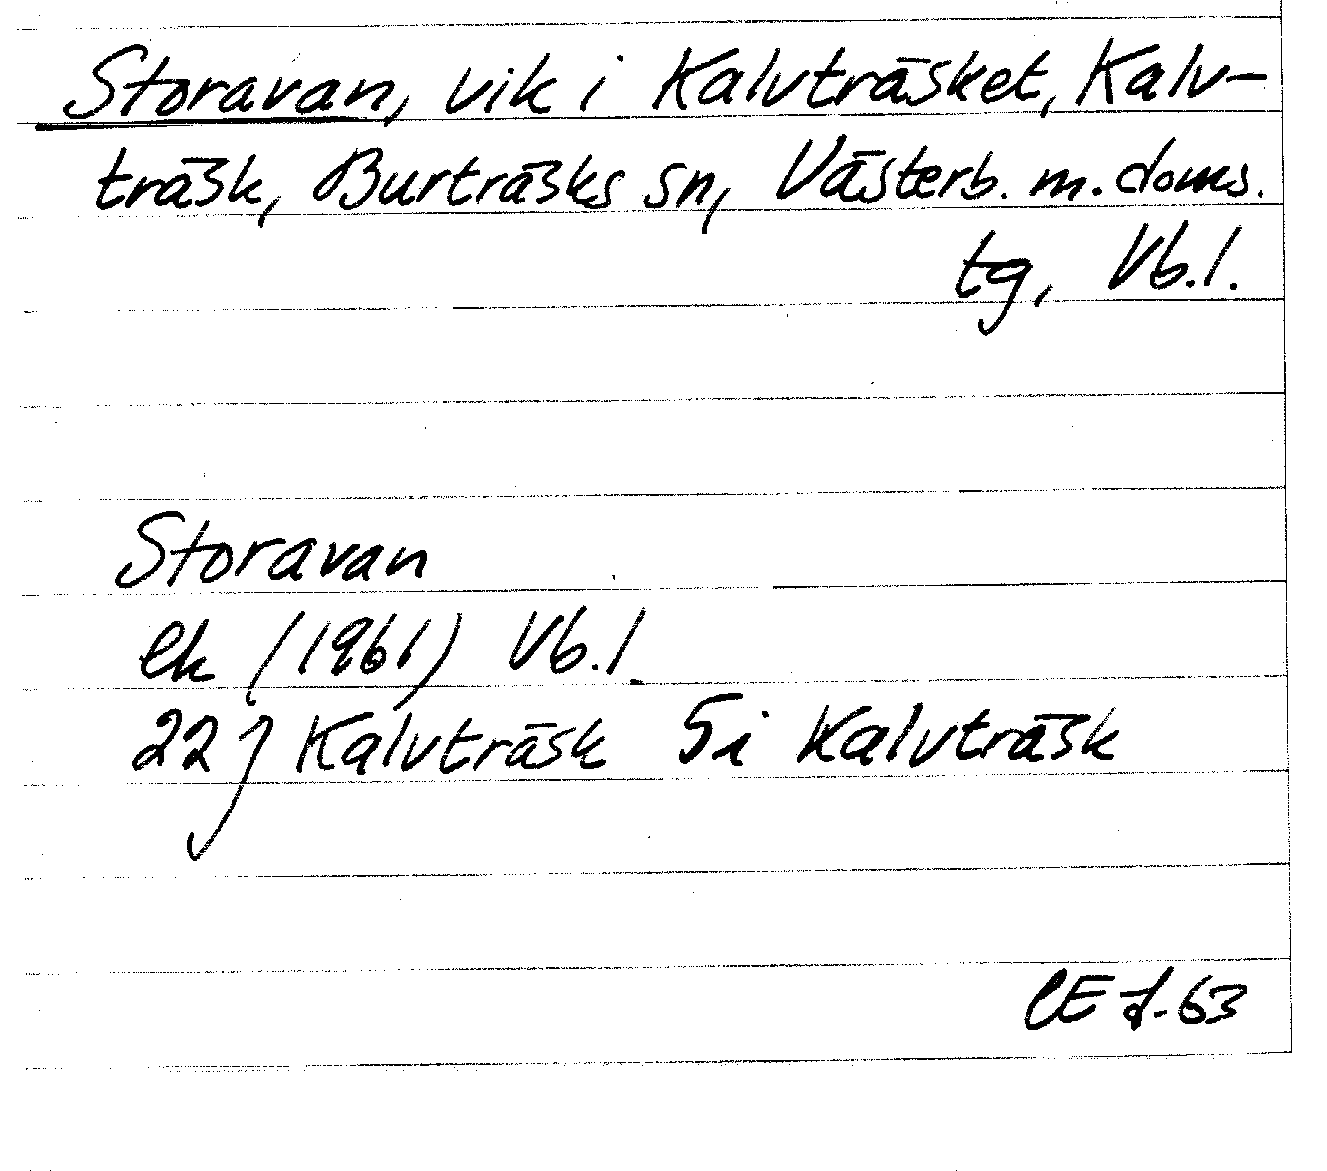 Storavan, vik i Kalvträsket, Kalv-
träsk, Burträsks sn, Västerb. m. doms.
tg, Vb.l.
Storavan
ek (1961) Vb.l.
22 J Kalvträsk 5i Kalvträsk
CE f. 63